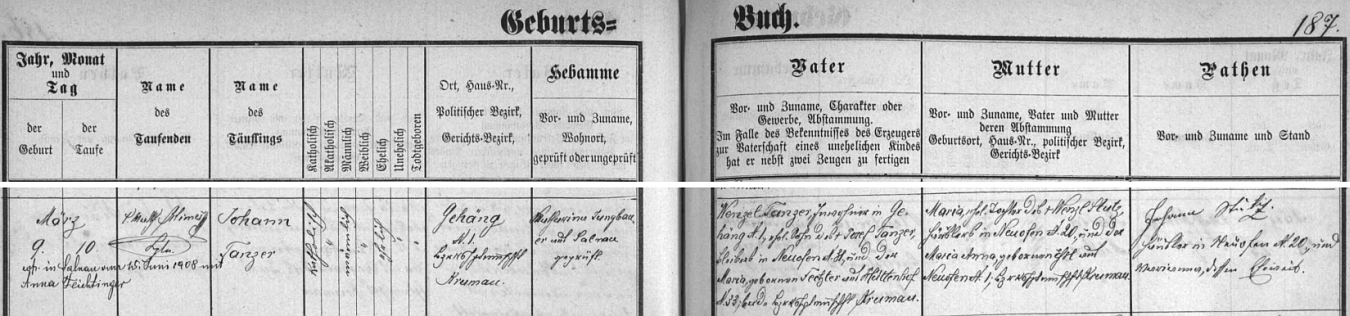 Geburts=
Buch.
187.
Jahr, Monat
und
Tag
der
Geburt
der
Taufe
Name
des
Taufenden
Name
des
Täuflings
Katholisch
Akatholisch
Männlich
Weiblich
Ehelich
Unehelich
Todtgeboren
Ort, Haus-Nr.,
Politischer Bezirk,
Gerichts-Bezirk,
Hebamme
Vor- und Zuname,
Wohnort,
geprüft oder ungeprüft
Vater
Vor- und Zuname, Charakter oder
Gewerbe, Abstammung.
Im Falle des Bekenntnisses des Erzeugers
zur Vaterschaft eines unehelichen Kindes
hat er nebst zwei Zeugen zu fertigen
Mutter
Vor- und Zuname, Vater und Mutter
deren Abstammung
Geburtsort, Haus-Nr., politischer Bezirk,
Gerichts-Bezirk
Pathen
Vor- und Zuname und Stand
März
9. 10
in Salnau am 15. Juni 1908 mit
Anna Feichtinger
Johann
Tanzer
Gehäng
N. 1.
Bezirkshauptmannschaft
Krumau.
Katharina Jungbau-
er aus Salnau
geprüft.
Wenzel Tanzer, Inwohner in Ge-
häng N. 1, ehel. Sohn des Josef Tanzer,
in Neuofen N. und der
Maria, gebornen aus
N. 33, Bezirkshauptmannschaft Krumau.
Maria, ehel. Tochter des Wenzl
Häuslers in Neuofen N. 20, und der
Maria Anna, gebornen aus
Neuofen N. 1; Bezirkshauptmannschaft Krumau.
Johann
Häusler in Neuofen N. 20, und
Marianna, dessen Eheweib.